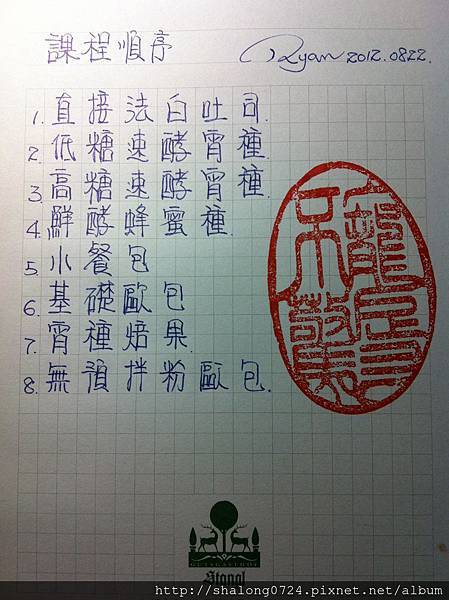 課程順序 Ryan 2012.0822.
1. 直接法白吐司.
2. 低糖速酵宵種.
3. 高糖速酵宵種.
4. 鮮酵蜂蜜種.
5. 小餐包
6. 基礎歐包
7. 宵種焙果.
8. 無預拌粉歐包.
GUTSGASTHOF
Stangl
http://shalong0724.pixnet.net/album